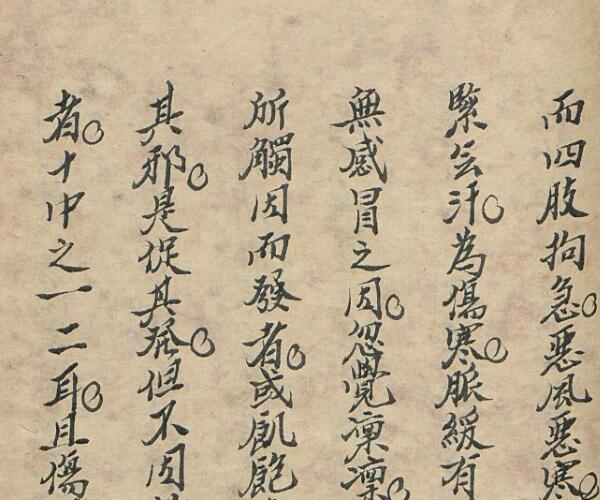 而四肢拘急。惡風惡寒
緊無汗。為傷寒。脈緩有
無感冒之因。忽覺凜凜。
所觸因而發者。或飢飽
其邪。是促其發。但不因
者。十中之一二耳。且傷